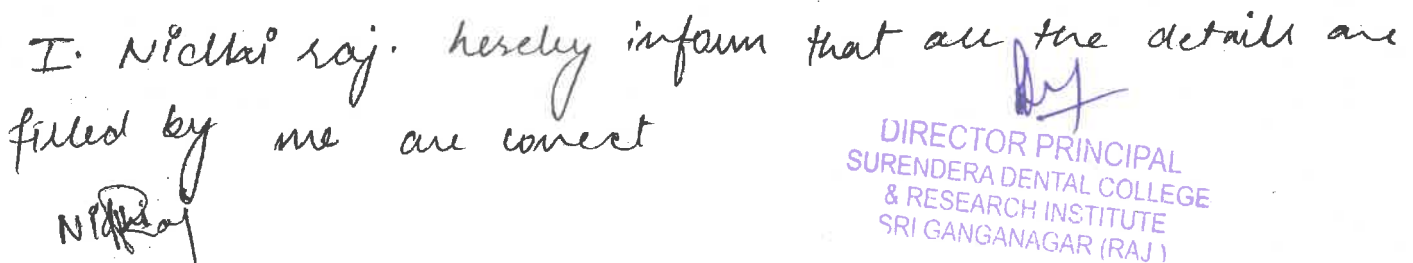 I. Nidhi raj. hereby inform that all the details are
filled by me are correct
Nidhi raj
DIRECTOR PRINCIPAL
SURENDERA DENTAL COLLEGE
& RESEARCH INSTITUTE
SRI GANGANAGAR (RAJ)